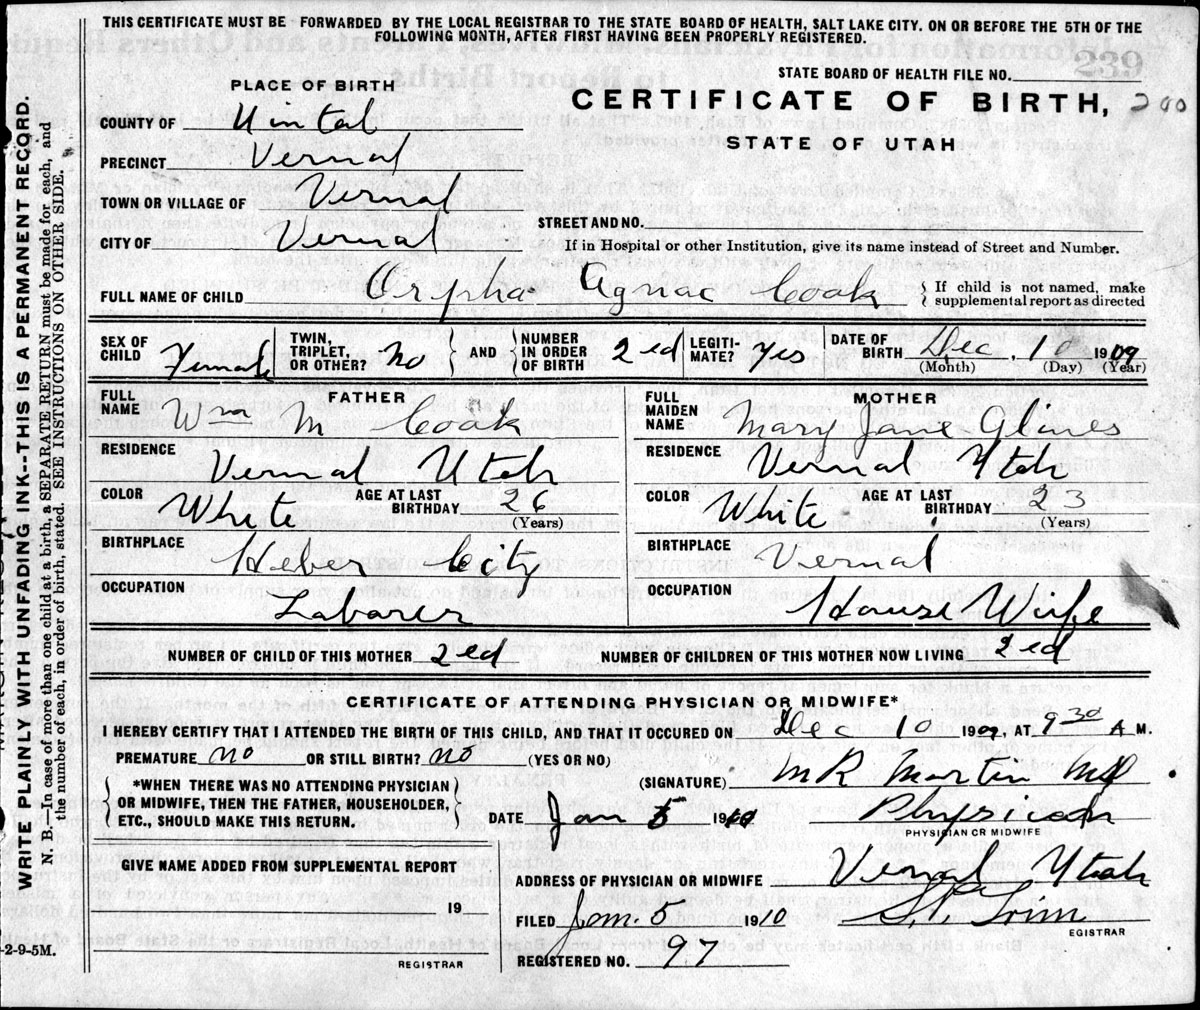 THIS CERTIFICATE MUST BE FORWARDED BY THE LOCAL REGISTRAR TO THE STATE BOARD OF HEALTH, SALT LAKE CITY. ON OR BEFORE THE 5TH OF THE
FOLLOWING MONTH, AFTER FIRST HAVING BEEN PROPERLY REGISTERED.
239
STATE BOARD OF HEALTH FILE NO.
PLACE OF BIRTH
CERTIFICATE OF BIRTH, 200
STATE OF UTAH
COUNTY OF Uintah
PRECINCT Vernal
TOWN OR VILLAGE OF Vernal
CITY OF Vernal
STREET AND NO.
If in Hospital or other Institution, give its name instead of Street and Number.
FULL NAME OF CHILD Orpha Agnac Cook { If child is not named, make
supplemental report as directed
SEX OF CHILD Female
TWIN, TRIPLET, OR OTHER? No
AND
NUMBER IN ORDER OF BIRTH 2 ed
LEGITIMATE? Yes
DATE OF BIRTH Dec, 10 1909
(Month) (Day) (Year)
FATHER
FULL NAME Wm M Cook
RESIDENCE Vernal Utah
COLOR White AGE AT LAST BIRTHDAY 26
(Years)
BIRTHPLACE Heber City
OCCUPATION Laborer
MOTHER
FULL MAIDEN NAME Mary Jane Glines
RESIDENCE Vernal Utah
COLOR White AGE AT LAST BIRTHDAY 23
(Years)
BIRTHPLACE Vernal
OCCUPATION House Wife
NUMBER OF CHILD OF THIS MOTHER 2 ed NUMBER OF CHILDREN OF THIS MOTHER NOW LIVING 2 ed
CERTIFICATE OF ATTENDING PHYSICIAN OR MIDWIFE*
I HEREBY CERTIFY THAT I ATTENDED THE BIRTH OF THIS CHILD, AND THAT IT OCCURED ON Dec 10 1909, AT 9 30 A M.
PREMATURE no OR STILL BIRTH? no (YES OR NO)
(SIGNATURE) M R Martin MD
*WHEN THERE WAS NO ATTENDING PHYSICIAN
OR MIDWIFE, THEN THE FATHER, HOUSEHOLDER,
ETC., SHOULD MAKE THIS RETURN.
DATE Jan 5 1910 Physician
PHYSICIAN OR MIDWIFE
GIVE NAME ADDED FROM SUPPLEMENTAL REPORT
19
REGISTRAR
ADDRESS OF PHYSICIAN OR MIDWIFE Vernal Utah
FILED Jan. 5 1910
EGISTRAR
REGISTERED NO. 97
WRITE PLAINLY WITH UNFADING INK--THIS IS A PERMANENT RECORD.
N. B.—In case of more than one child at a birth, a SEPARATE RETURN must be made for each, and
the number of each, in order of birth, stated. SEE INSTRUCTIONS ON OTHER SIDE.
-2-9-5M.